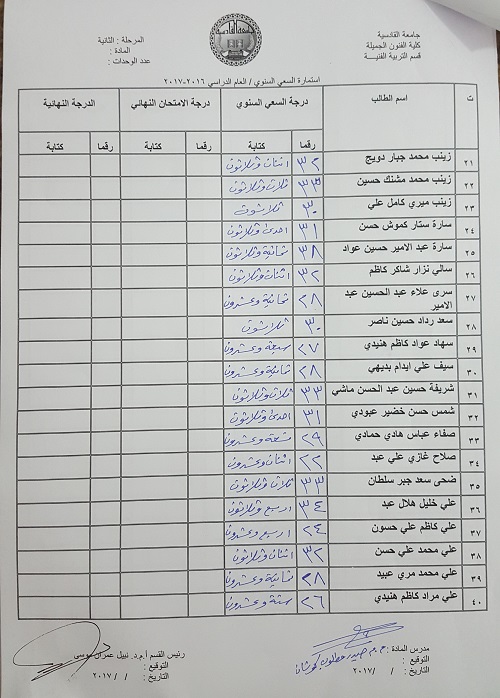 جامعة القادسية
كلية الفنون الجميلة
قسم التربية الفنية
المرحلة : الثانية
المادة :
عدد الوحدات :
استمارة السعي السنوي / العام الدراسي ٢٠١٦-٢٠١٧
ت اسم الطالب درجة السعي السنوي درجة الامتحان النهائي الدرجة النهائية
رقما كتابة رقما كتابة رقما كتابة
٢١ زينب محمد جبار دويج ٣٢ اثنان وثلاثون
٢٢ زينب محمد مشنك حسين ٣٣ ثلاث وثلاثون
٢٣ زينب ميري كامل علي ٣٠ ثلاثون
٢٤ سارة ستار كموش حسن ٣١ احدى وثلاثون
٢٥ سارة عبد الامير حسين عواد ٣٨ ثمانية وثلاثون
٢٦ سالي نزار شاكر كاظم ٣٢ اثنان وثلاثون
٢٧ سرى علاء عبد الحسين عبد الامير ٢٨ ثمانية وعشرون
٢٨ سعد رداد حسين ناصر ٣٠ ثلاثون
٢٩ سهاد عواد كاظم هنيدي ٢٧ سبعة وعشرون
٣٠ سيف علي ايدام بديهي ٢٨ ثمانية وعشرون
٣١ شريفة حسين عبد الحسن ماشي ٣٣ ثلاث وثلاثون
٣٢ شمس حسن خضير عبودي ٣١ احدى وثلاثون
٣٣ صفاء عباس هادي حمادي ٢٩ تسعة وعشرون
٣٤ صلاح غازي علي عبد ٢٢ اثنان وعشرون
٣٥ ضحى سعد جبر سلطان ٣٣ ثلاث وثلاثون
٣٦ علي خليل هلال عبد ٣٤ اربع وثلاثون
٣٧ علي كاظم علي حسون ٢٤ اربع وعشرون
٣٨ علي محمد علي حسن ٣٢ اثنان وثلاثون
٣٩ علي محمد مري عبيد ٢٨ ثمانية وعشرون
٤٠ علي مراد كاظم هنيدي ٢٦ ستة وعشرون
مدرس المادة : م.م حيدر
التوقيع :
التاريخ : / /٢٠١٧
رئيس القسم أ.م.د. نبيل عمران موسى
التوقيع :
التاريخ : / /٢٠١٧